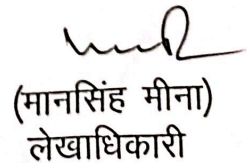 (मानसिंह मीना)
लेखाधिकारी